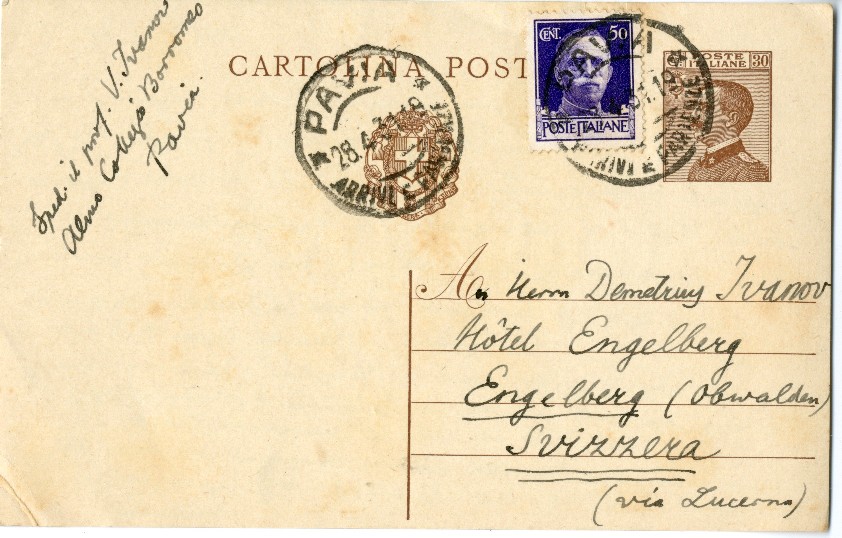 Sped. il prof. V. Ivanov
Almo Collegio Borromeo
Pavia.
CARTOLINA POST
CENT. 50
POSTE ITALIANE
POSTE
ITALIANE 30
PAVIA
28.4.31.19
ARRIVI E PARTENZE
PAVIA
ARRIVI E PARTENZE
An Herrn Demetrius Ivanov
Hôtel Engelberg
Engelberg (Obwalden)
Svizzera
(via Lucerna)